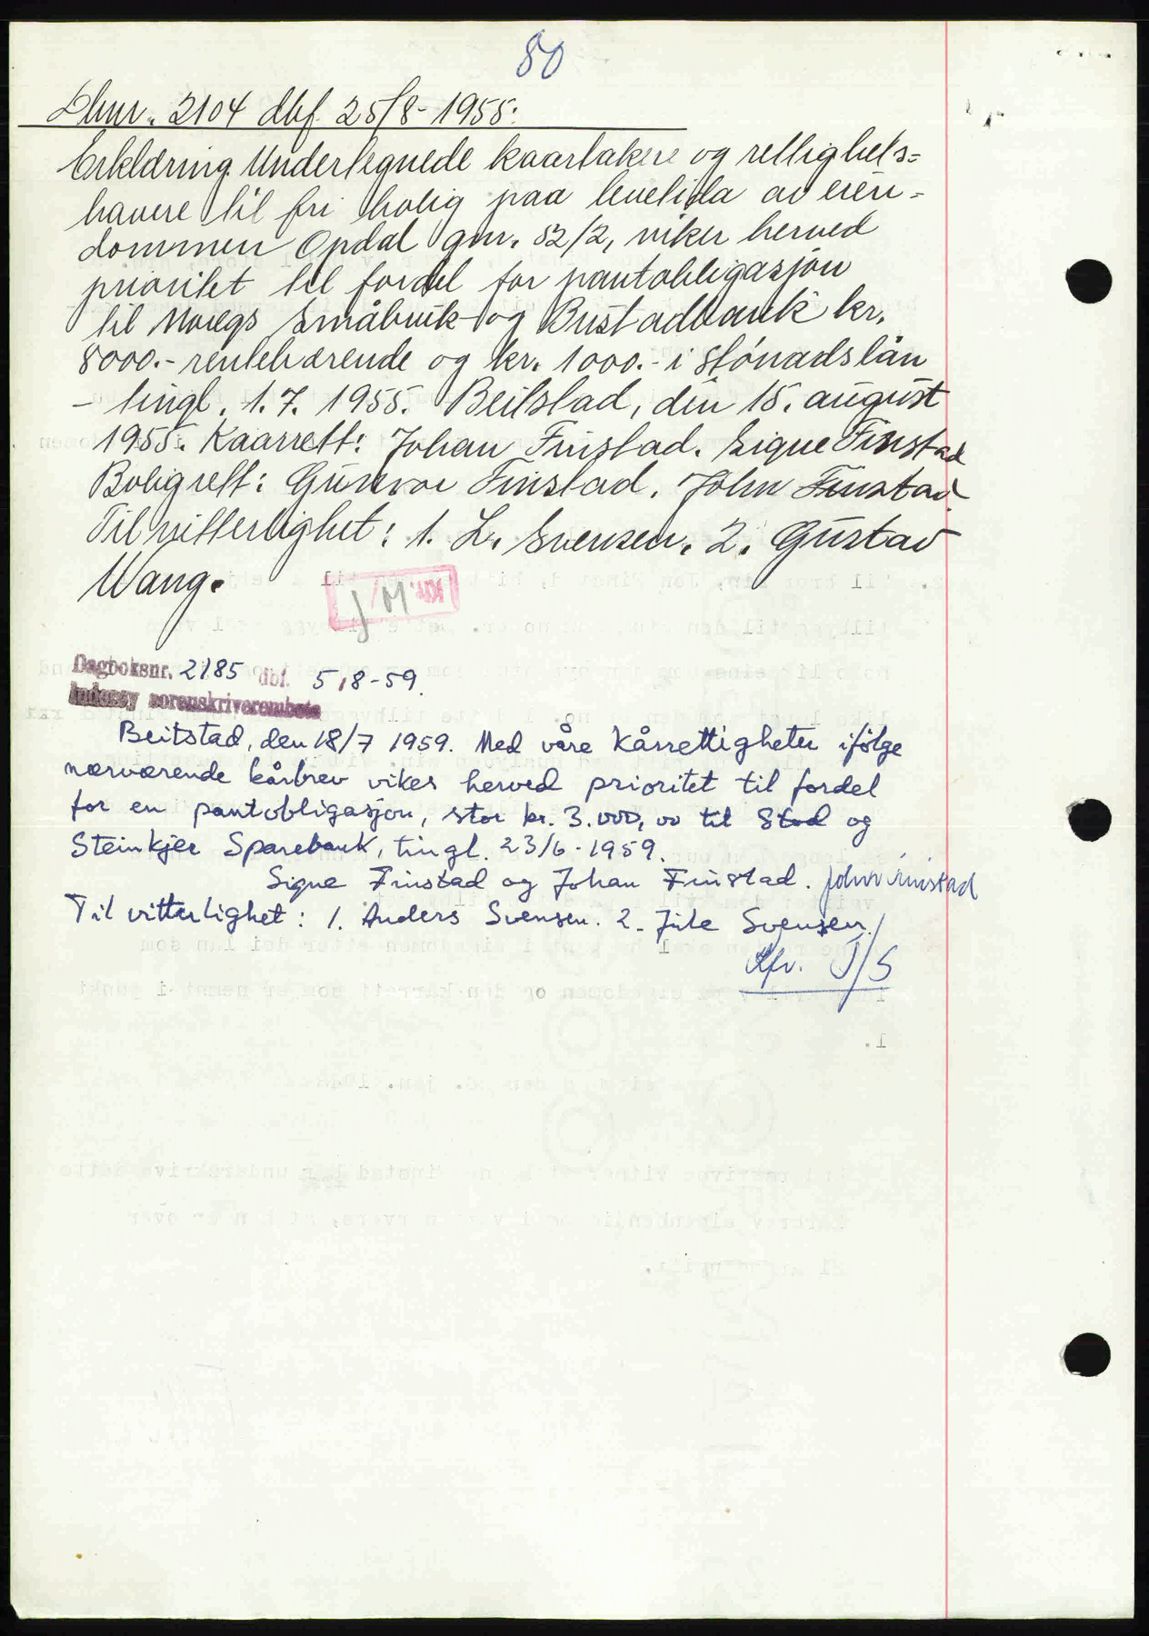 80
Dbnr. 2104 dbf 25/8-1955:
Erklæring. Undertegnede kaartakere og rettighets=
havere til fri bolig paa levetida av eien-
dommen Opdal gnr. 82/2, viker herved
prioritet til fordel for pantobligasjon
til Noregs Småbruk- og Bustadbank kr.
8000.- rentebærende og kr. 1000.- i stónadslån
- tingl. 1.7. 1955. Beitstad, den 15. august
1955. Kaarrett: Johan Finstad. Signe Finstad
Boligrett: Gunvor Finstad. John Finstad.
Til vitterlighet: 1. L. Svensen. 2. Gustav
Wang.
J/M
Dagboksnr. 2185 dbf. 5/8-59.
Inderøy sorenskriverembete
Beitstad, den 18/7 1959. Med våre kårrettigheter ifølge
nærværende kårbrev vikes herved prioritet til fordel
for en pantobligasjon, stor kr. 3.000,00 til Stod og
Steinkjer Sparebank, tingl. 23/6-1959.
Signe Finstad og Johan Finstad. John Finstad
Til vitterlighet: 1. Anders Svensen. 2. Jule Svensen.
Kfr. J/S